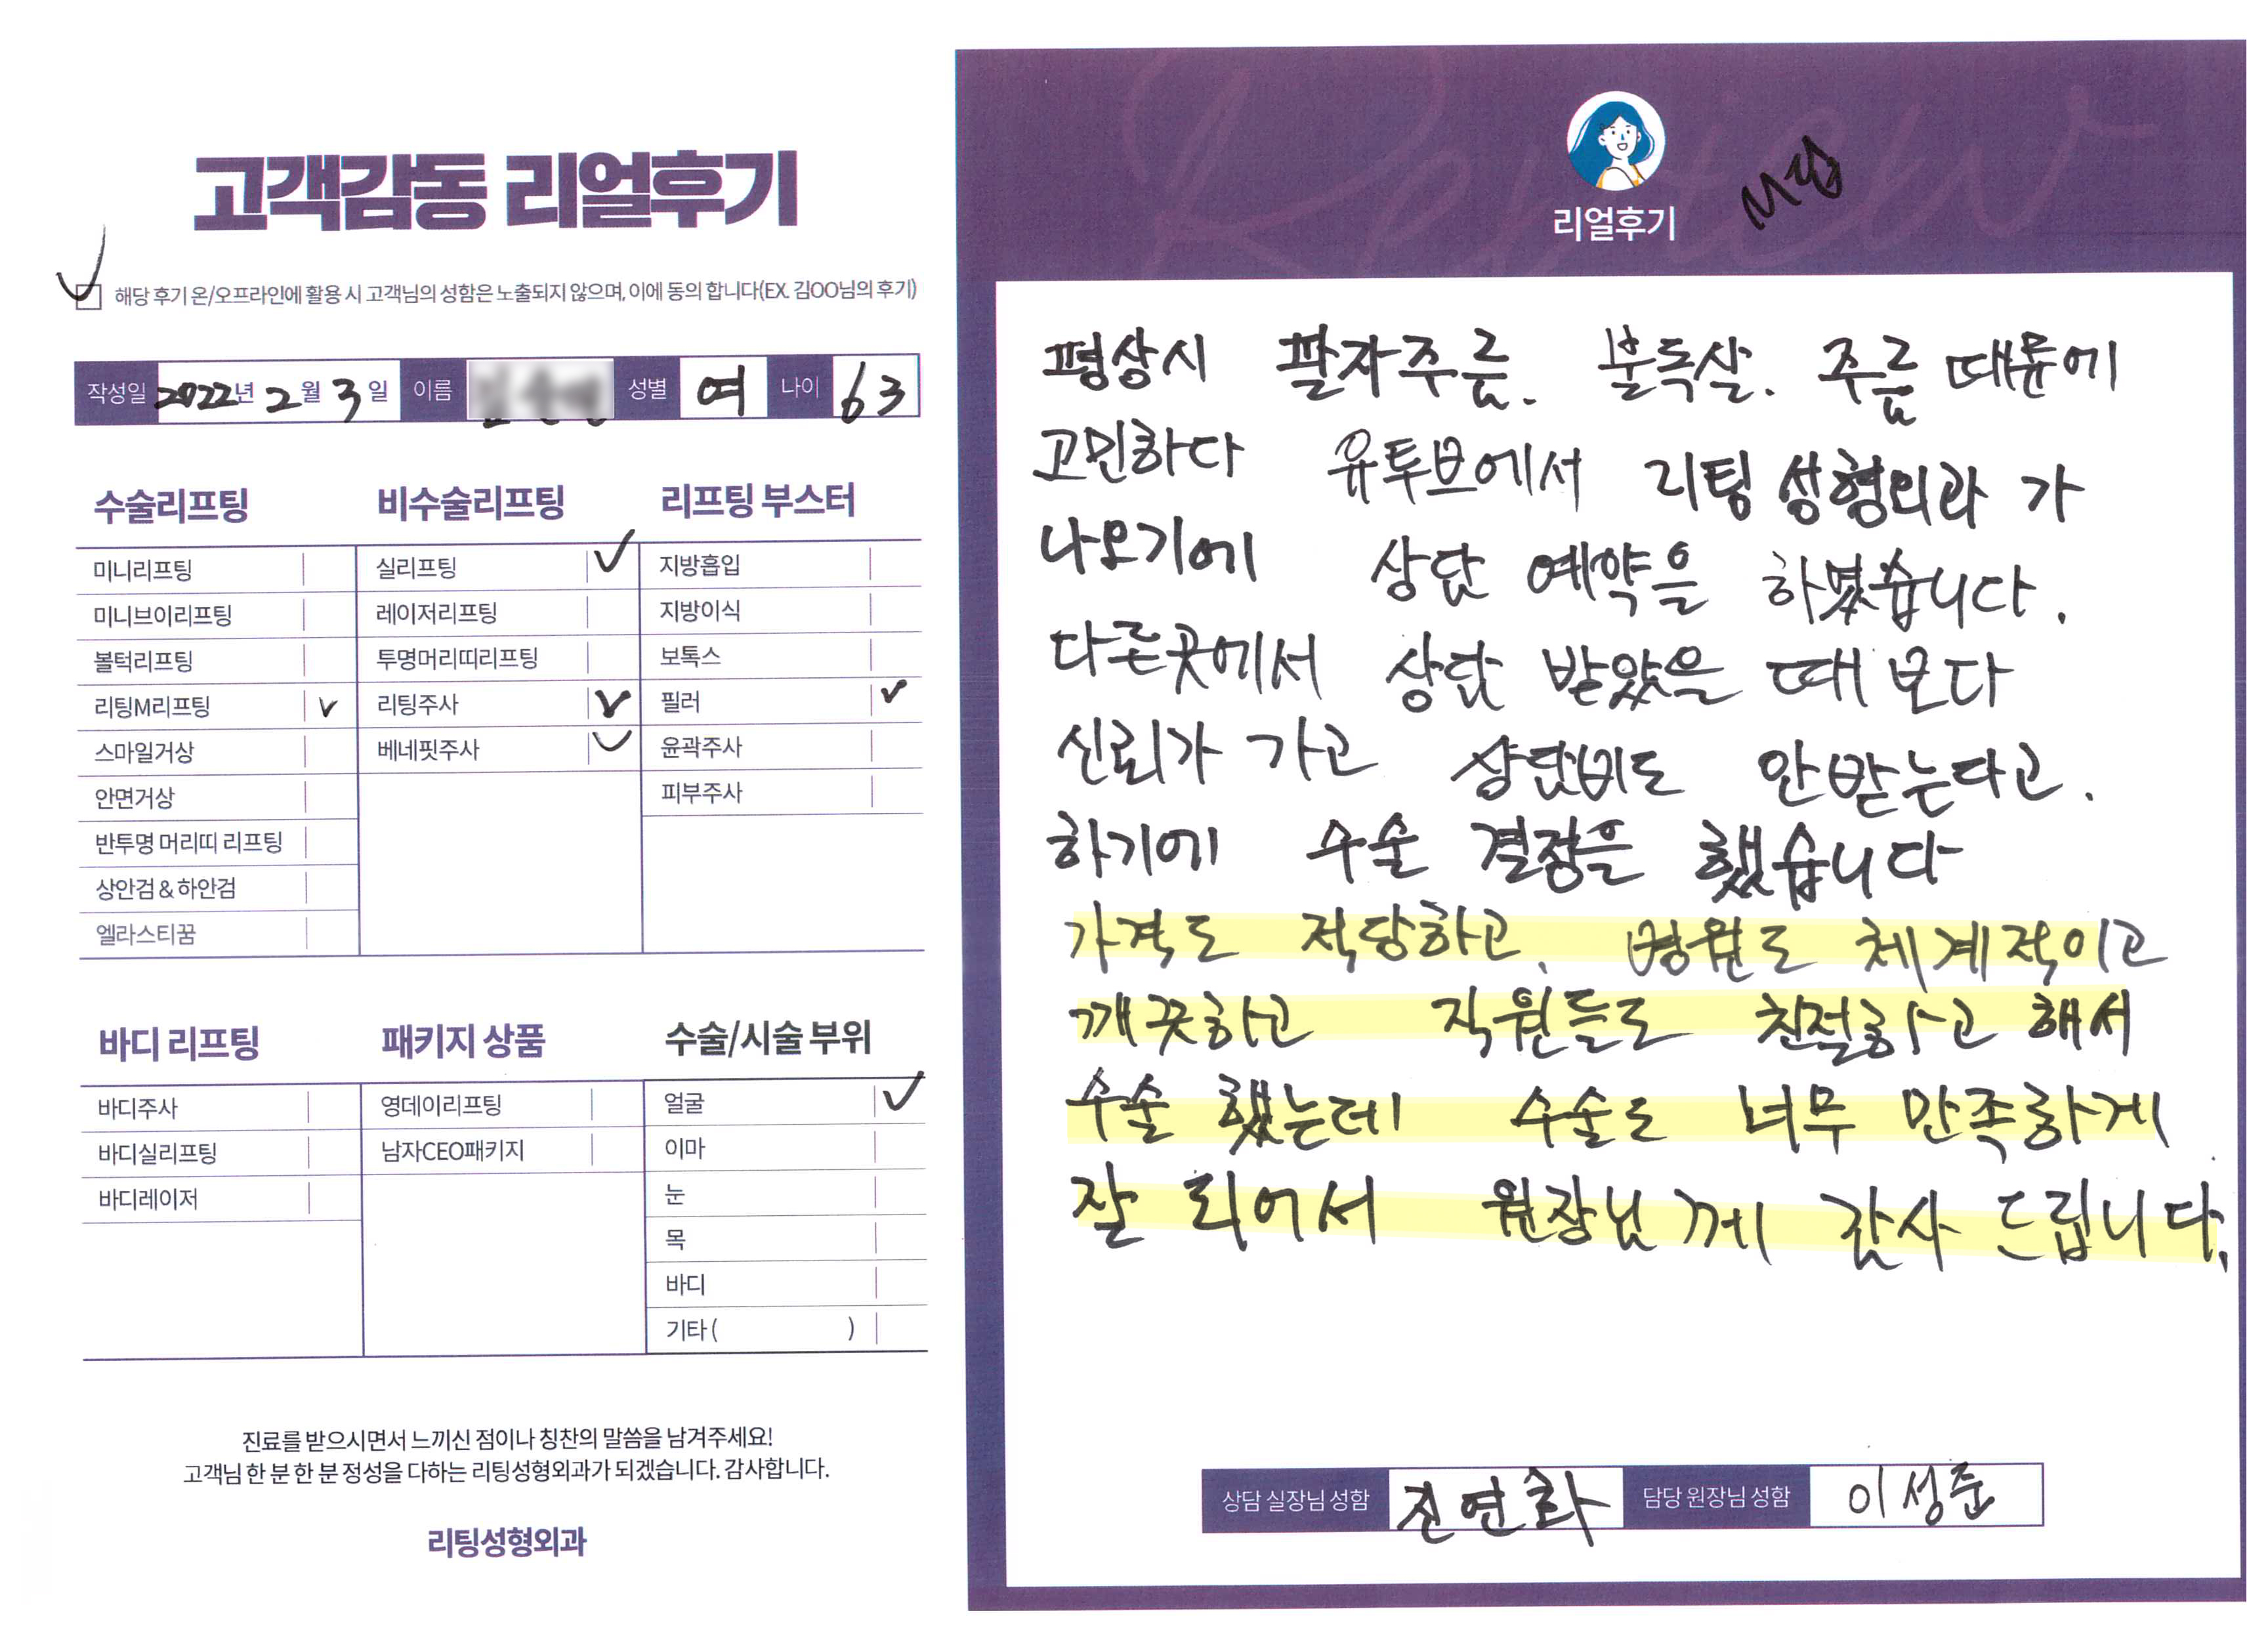 고객감동 리얼후기
해당 후기 온/오프라인에 활용 시 고객님의 성함은 노출되지 않으며, 이에 동의 합니다(EX. 김OO님의 후기)
작성일 2022년 2월 3일 이름 성별 여 나이 63
수술리프팅
미니리프팅
미니브이리프팅
볼턱리프팅
리팅M리프팅
스마일거상
안면거상
반투명 머리띠 리프팅
상안검 & 하안검
엘라스티꿈
비수술리프팅
실리프팅
레이저리프팅
투명머리띠리프팅
리팅주사
베네핏주사
리프팅 부스터
지방흡입
지방이식
보톡스
필러
윤곽주사
피부주사
바디 리프팅
바디주사
바디실리프팅
바디레이저
패키지 상품
영데이리프팅
남자CEO패키지
수술/시술 부위
얼굴
이마
눈
목
바디
기타 ( )
진료를 받으시면서 느끼신 점이나 칭찬의 말씀을 남겨주세요!
고객님 한 분 한 분 정성을 다하는 리팅성형외과가 되겠습니다. 감사합니다.
리팅성형외과
Review
리얼후기
평상시 팔자주름. 불독살. 주름 때문에
고민하다 유투브에서 리팅 성형외과 가
나오기에 상담 예약을 하였습니다.
다른곳에서 상담 받았을 때 보다
신뢰가 가고 상담비도 안받는다고.
하기에 수술 결정을 했습니다
가격도 적당하고. 병원도 체계적이고
깨끗하고 직원들도 친절하고 해서
수술 했는데 수술도 너무 만족하게
잘 되어서 원장님께 감사 드립니다.
상담 실장님 성함 진연화 담당 원장님 성함 이성준